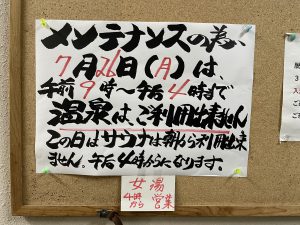 メンテナンスの為、
7月26日(月)は、
午前9時〜午后4時まで
温泉は、ご利用出来ません
この日はサウナは朝から利用出来
ません、午后4時からになります。
女湯
4時から 営業